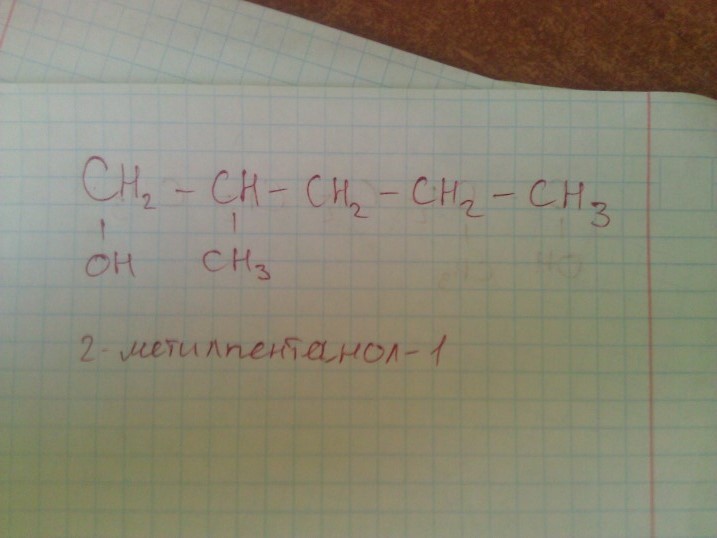 CH₂ – CH – CH₂ – CH₂ – CH₃
OH CH₃
2-метилпентанол-1